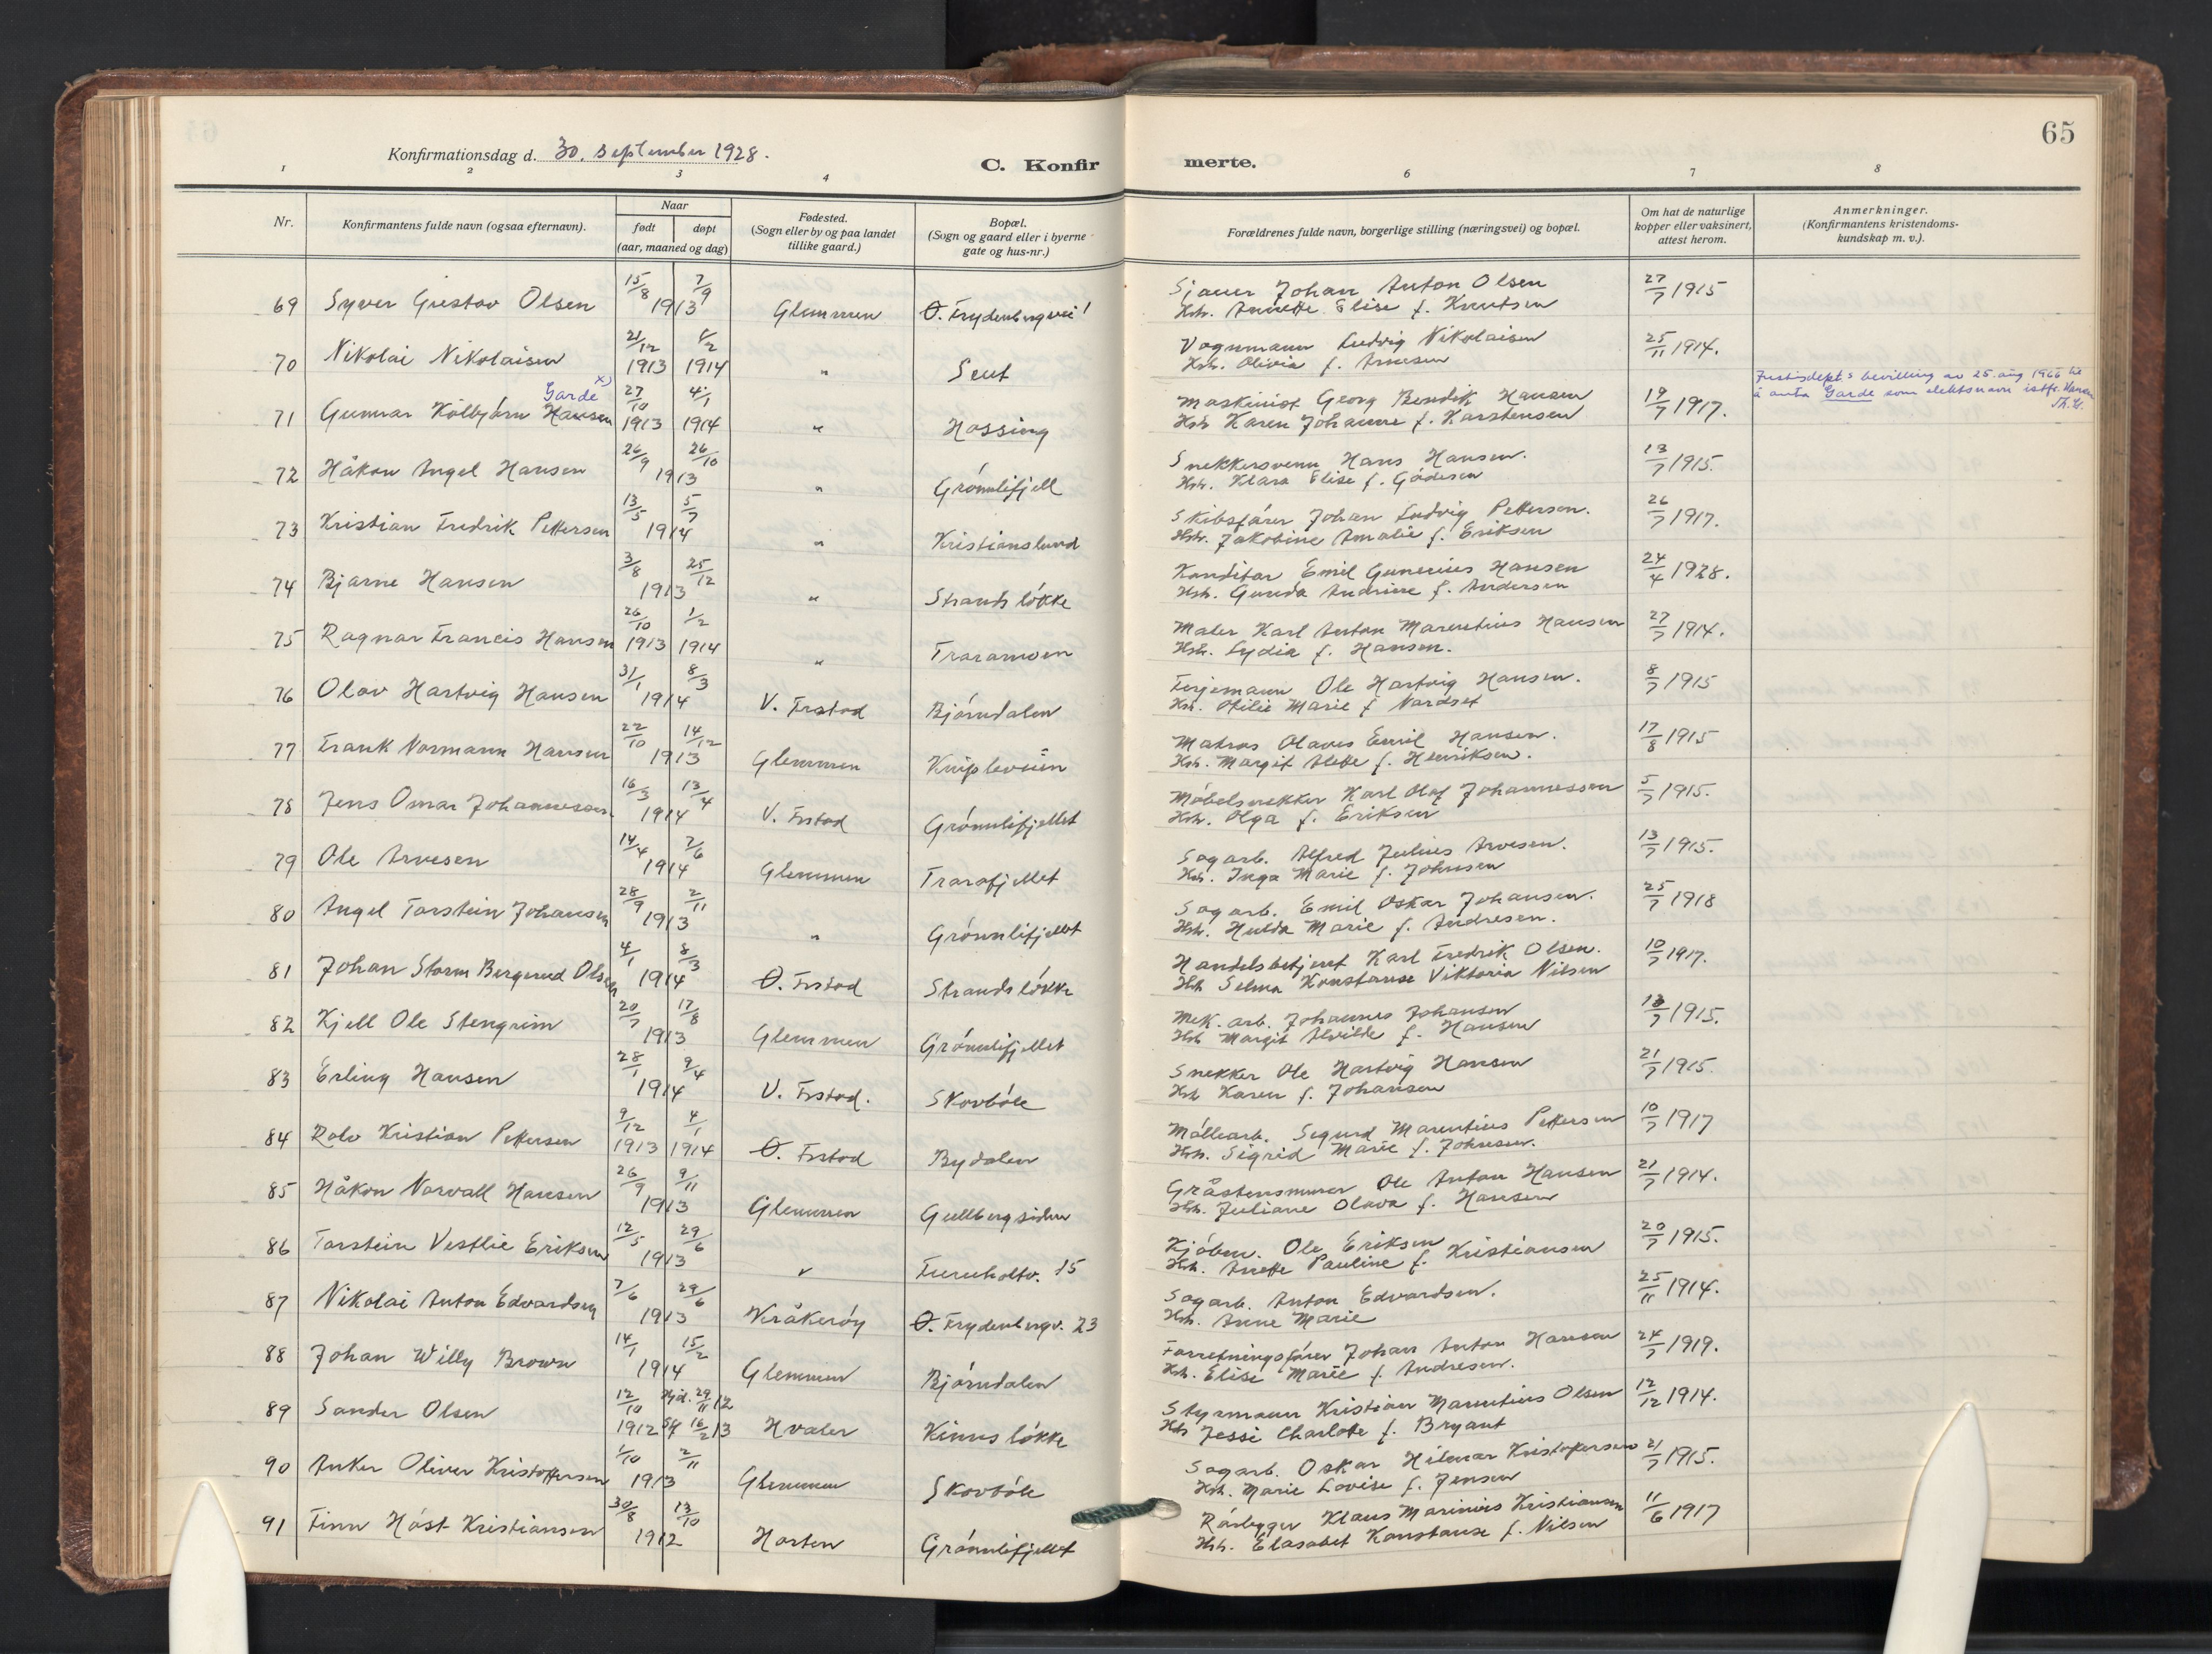 65
Konfirmationsdag d. 30. september 1928.
C. Konfir
merte.
1 2 3 4 6 7 8
Nr.
Konfirmantens fulde navn (ogsaa efternavn).
Naar
født døpt
(aar, maaned og dag)
Fødested.
(Sogn eller by og paa landet
tillike gaard.)
Bopæl.
(Sogn og gaard eller i byerne
gate og hus-nr.)
Forældrenes fulde navn, borgerlige stilling (næringsvei) og bopæl.
Om hat de naturlige
kopper eller vaksinert,
attest herom.
Anmerkninger.
(Konfirmantens kristendoms-
kundskap m. v.).
69 Syver Gustav Olsen 15/8 7/9 1913 Glemmen Ø. Frydenbergvei 1 Sjauer Johan Anton Olsen 27/7 1915
Hstr. Anette Elise f. Knutsen
70 Nikolai Nikolaisen 21/12 1913 8/2 1914 " Seut Vognmann Ludvig Nikolaisen 25/11 1914.
Hstr. Olivia f. Arnesen
Garde x)
71 Gunnar Kolbjørn Hansen 27/10 1913 4/1 1914 " Hassing Maskinist Georg Bendik Hansen 19/7 1917. Justisdept.s bevilling av 25. aug 1966 til
Hstr Karen Johanne f. Karstensen å anta Garde som slektsnavn istf. Hansen
Th. H.
72 Håkon Angel Hansen 26/9 26/10 1913 " Grønnlifjell Snekkersvenn Hans Hansen. 13/7 1915.
Hstr. Klara Elise f. Gødesen
73 Kristian Fredrik Pettersen 13/5 5/7 1914 " Kristianslund Skibsfører Johan Ludvig Pettersen. 26/7 1917.
Hstr. Jakobine Amalie f. Eriksen
74 Bjarne Hansen 3/8 25/12 1913 " Strandsløkke Konditor Emil Gunerius Hansen 24/4 1928.
Hstr. Gunda Andrine f. Andersen
75 Ragnar Francis Hansen 26/10 1913 1/2 1914 " Traramoen Maler Karl Anton Marentius Hansen 27/7 1914.
Hstr. Lydia f. Hansen.
76 Olav Hartvig Hansen 31/1 8/3 1914 V. Frstad Bjørndalen Ferjemann Ole Hartvig Hansen. 8/7 1915
Hstr. Otilie Marie f Nordset
77 Frank Normann Hansen 22/10 14/12 1913 Glemmen Knipleveien Matros Olaves Emil Hansen. 17/8 1915
Hstr. Margit Alette f. Henriksen.
78 Jens Omar Johannessen 16/3 13/4 1914 V. Frstad Grønnlifjellet Møbelsnekker Karl Olaf Johannessen 5/7 1915.
Hstr. Olga f. Eriksen
79 Ole Arvesen 14/4 7/6 1914 Glemmen Trarafjellet Sagarb. Alfred Julius Arvesen. 13/7 1915.
Hstr. Inga Marie f. Johnsen
80 Angel Torstein Johansen 28/9 2/11 1913 " Grønnlifjellet Sagarb. Emil Oskar Johansen. 25/7 1918
Hstr. Hulda Marie f. Andresen.
81 Johan Storm Bergerud Olsen 4/1 8/3 1914 Ø. Frstad Strandsløkke Handelsbetjent Karl Fredrik Olsen. 10/7 1917.
Hstr Selma Konstanse Viktoria Nilsen
82 Kjell Ole Stengrim 20/7 17/8 1913 Glemmen Grønnlifjellet Mek. arb. Johannes Johansen 13/7 1915.
Hstr Margit Alvilde f. Hansen
83 Erling Hansen 28/1 9/4 1914 V. Frstad. Skovbøle Snekker Ole Hartvig Hansen 21/7 1915.
Hstr Karen f. Johansen
84 Rolv Kristian Pettersen 9/12 1913 4/1 1914 Ø. Frstad Bydalen Møllearb. Sigurd Marentius Pettersen 10/7 1917
Hstr. Sigrid Marie f. Johnsen.
85 Håkon Norvall Hansen 26/9 9/11 1913 Glemmen Gullbergsiden Gråstensmurer Ole Anton Hansen 21/7 1914.
Hstr. Juliane Olava f. Hansen
86 Torstein Vestlie Eriksen 12/5 29/6 1913 " Furuholtv. 15 Kjøbm. Ole Eriksen 20/7 1915.
Hstr. Anette Pauline f. Kristiansen
87 Nikolai Anton Edvardsen 7/6 29/6 1913 Kråkerøy Ø. Frydenbergv. 23 Sagarb. Anton Edvardsen. 25/11 1914.
Hstr. Anne Marie
88 Johan Willy Brown 14/1 15/2 1914 Glemmen Bjørndalen Forretningsfører Johan Anton Hansen 24/7 1919.
Hstr. Elise Marie f. Andresen.
89 Sander Olsen 12/10 1912 Hjd. 29/11 12 Stf 16/2 13 Hvaler Kinnsløkke Styrmann Kristian Marentius Olsen 12/12 1914.
Hstr Jessi Charlotte f. Bryant
90 Anker Oliver Kristoffersen 1/10 2/11 1913 Glemmen Skovbøle Sagarb. Oskar Hilmar Kristoffersen 21/7 1915.
Hstr. Marie Lovise f. Jensen
91 Finn Høst Kristiansen 30/8 13/10 1912 Horten Grønnlifjellet Rørlegger Klaus Marinius Kristiansen 11/6 1917
Hstr. Elasabet Konstanse f. Nilsen